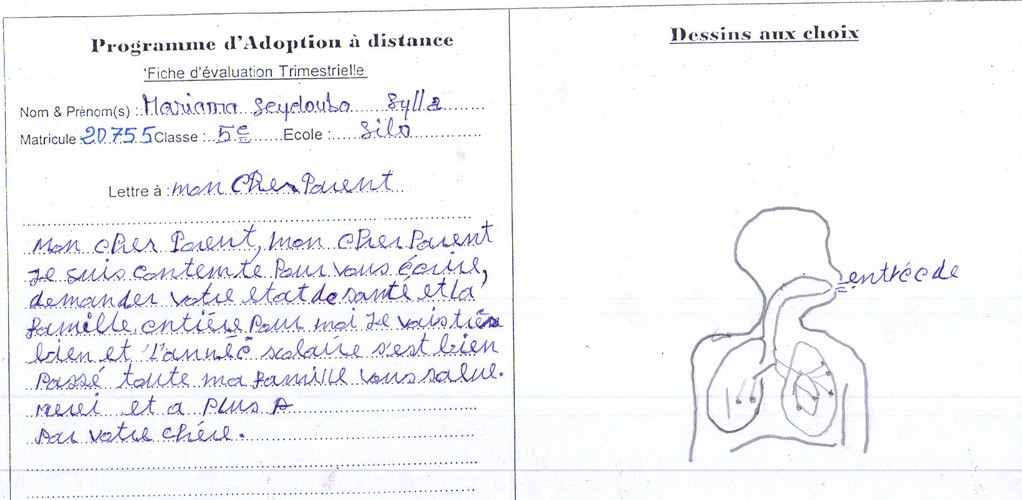 Programme d'Adoption à distance
Fiche d'évaluation Trimestrielle
Nom & Prénom(s) : Mariama Seydouba Sylla
Matricule 20755 Classe : 5e Ecole : Silo
Lettre à : mon cher Parent
Mon cher Parent, mon cher Parent
Je suis contemte Pour vous écrire,
demander votre etat de santé et la
famille entière Pour moi Je vais
bien et L'année scolaire s'est bien
Passé toute ma famille vous salue.
merci et a Plus
Par votre chére.
Dessins aux choix
entrée de